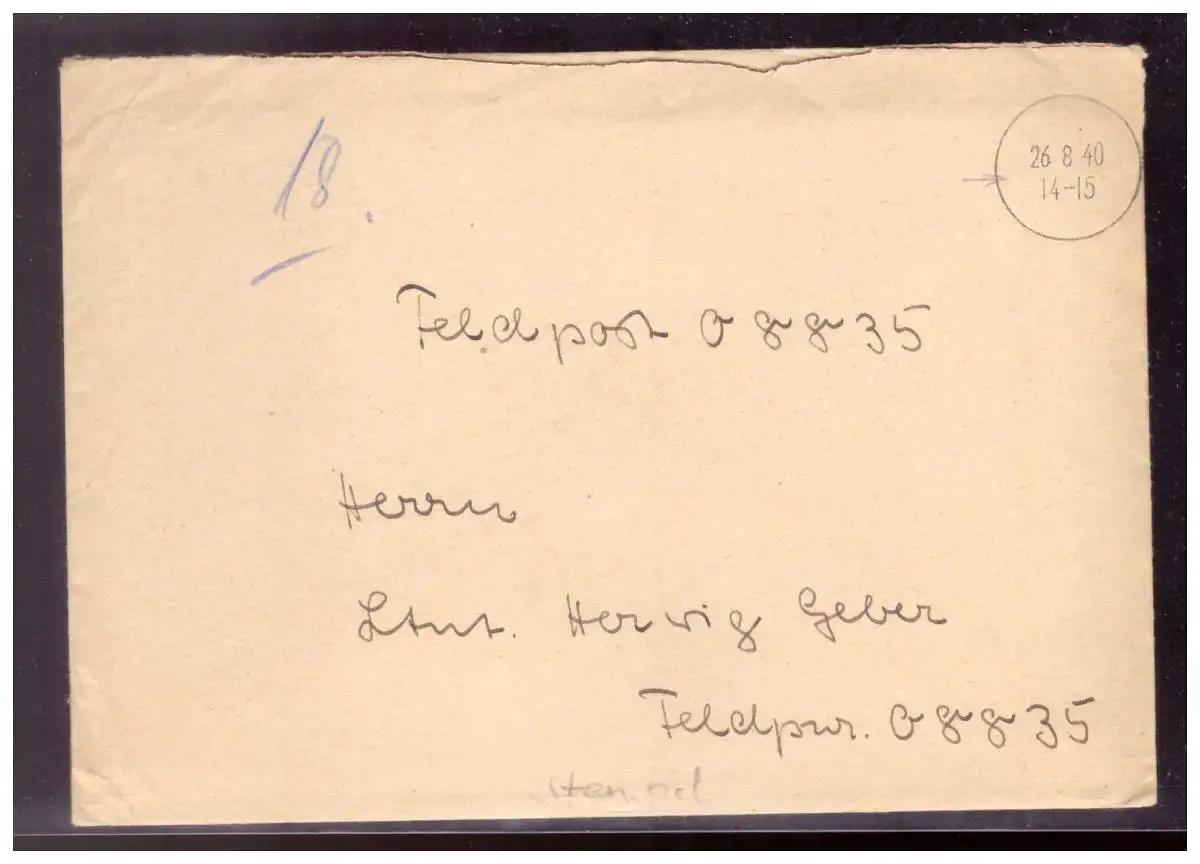 18.
26 8 40
14-15
Feldpost 08835
Herrn
Ltnt. Herwig Geber
Feldpnr. 08835